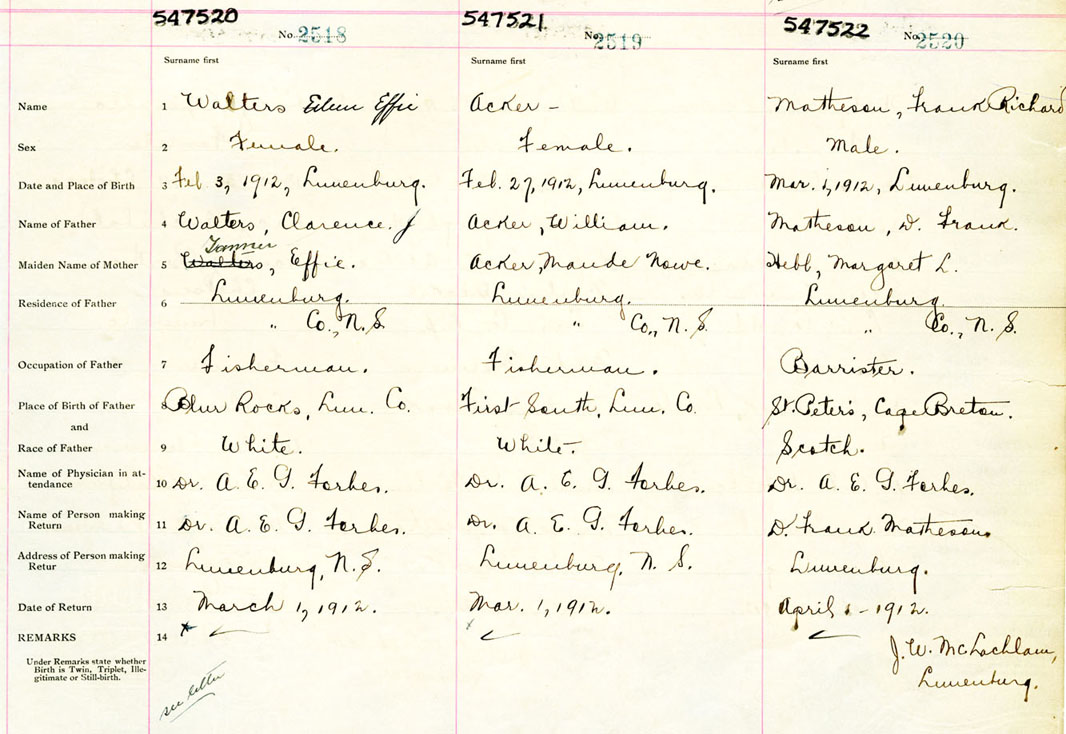 547520 547521 547522
No. 2518 No 2519 No 2520
Surname first Surname first Surname first
Name 1 Walters Eileen Effie Acker - Matheson, Frank Richard
Sex 2 Female. Female. Male.
Date and Place of Birth 3 Feb. 3, 1912, Lunenburg. Feb. 27, 1912, Lunenburg. Mar. 1, 1912, Lunenburg.
Name of Father 4 Walters, Clarence. J Acker, William. Matheson, D. Frank.
Tanner
Maiden Name of Mother 5 Walters, Effie. Acker, Maude Nowe. Hebb, Margaret L.
Residence of Father 6 Lunenburg. Lunenburg. Lunenburg.
" Co., N.S. " Co., N.S. " Co., N.S.
Occupation of Father 7 Fisherman. Fisherman. Barrister.
Place of Birth of Father 8 Blue Rocks, Lun. Co. First South, Lun. Co. St. Peter's, Cape Breton.
and
Race of Father 9 White. White. Scotch.
Name of Physician in at-
tendance 10 Dr. A. E. G. Forbes. Dr. A. E. G. Forbes. Dr. A. E. G. Forbes.
Name of Person making
Return 11 Dr. A. E. G. Forbes. Dr. A. E. G. Forbes. D. Frank Matheson
Address of Person making
Retur 12 Lunenburg, N.S. Lunenburg, N.S. Lunenburg.
Date of Return 13 March 1, 1912. Mar. 1, 1912. April 1 - 1912.
REMARKS 14
J. W. McLachlan,
Under Remarks state whether
Birth is Twin, Triplet, Ille-
gitimate or Still-birth.
Lunenburg.
see letter